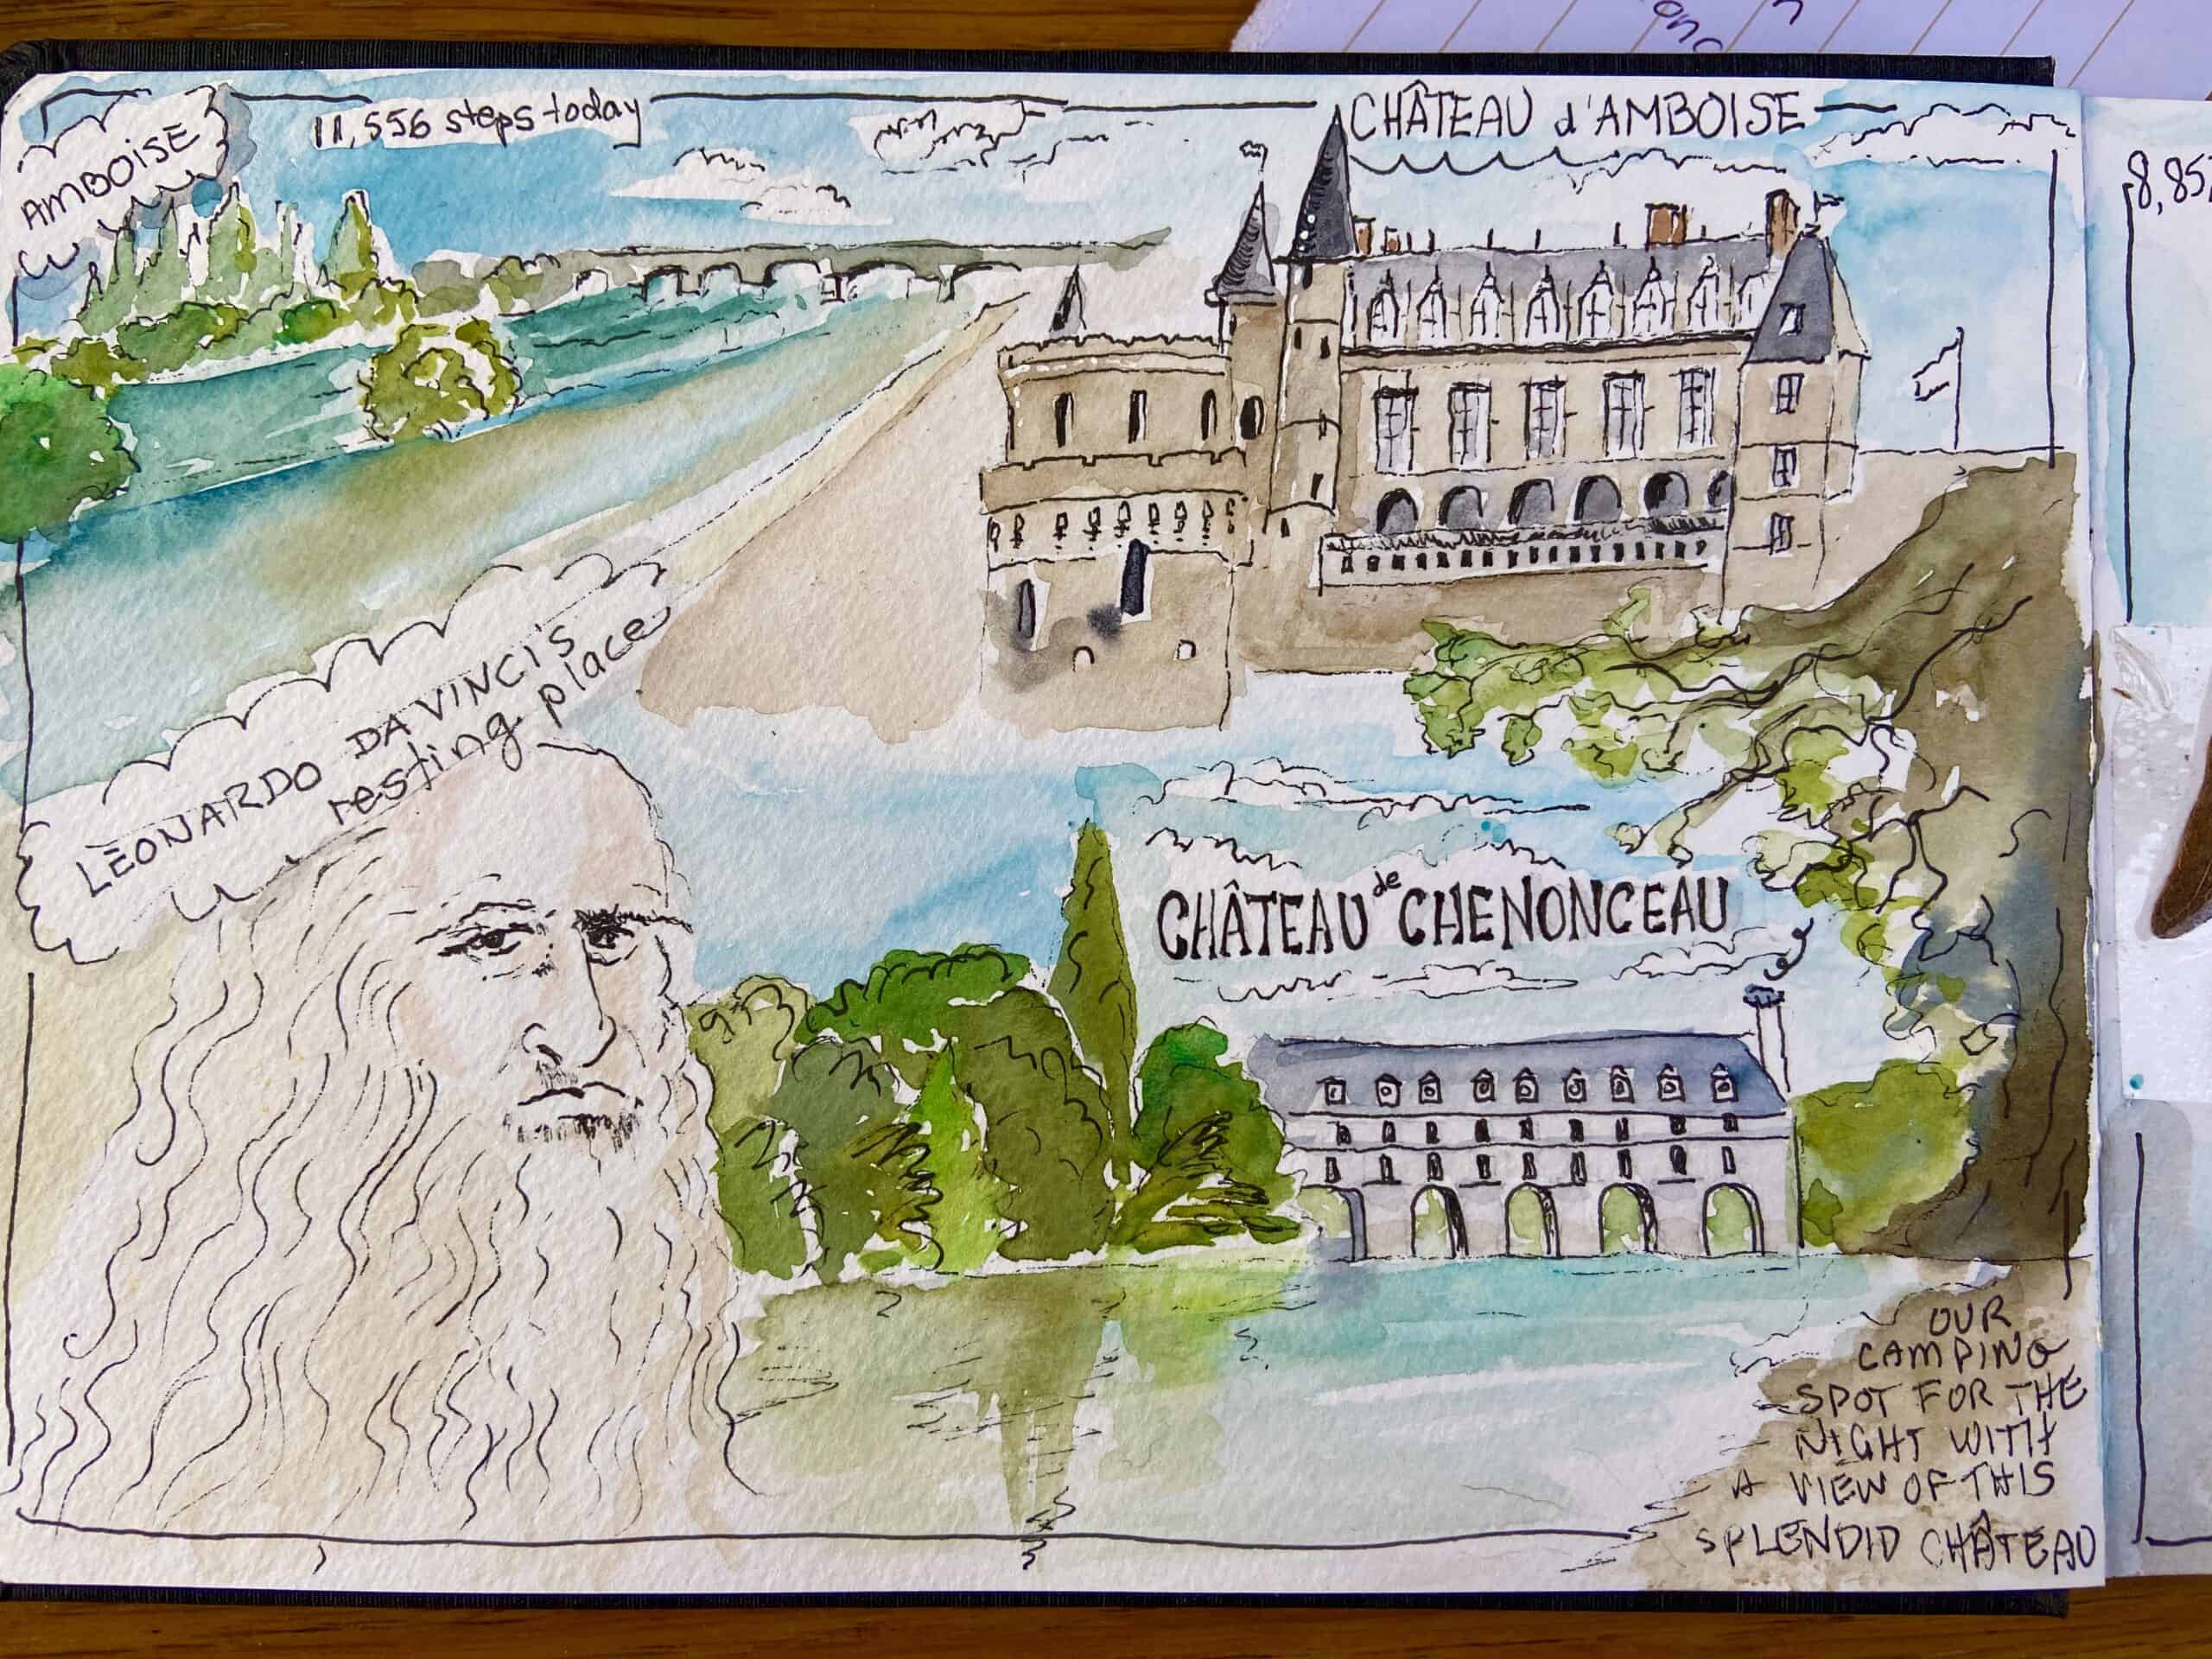 AMBOISE
11,556 steps today
CHÂTEAU d'AMBOISE
LÉONARDO DA VINCI'S
resting place
CHÂTEAU de CHENONCEAU
OUR
CAMPING
SPOT FOR THE
NIGHT WITH
A VIEW OF THIS
SPLENDID CHÂTEAU
8,85